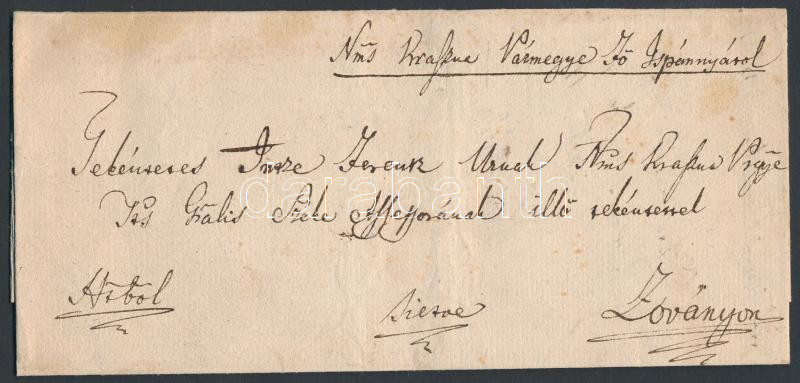 Nms Kraszna Vármegye Fő Ispánnyától
Tekéntetes Incze Ferencz Urnak Nms Kraszna Vgye
Széke Assessorának illő tekéntettel
darabanth
Sietve
Zoványon